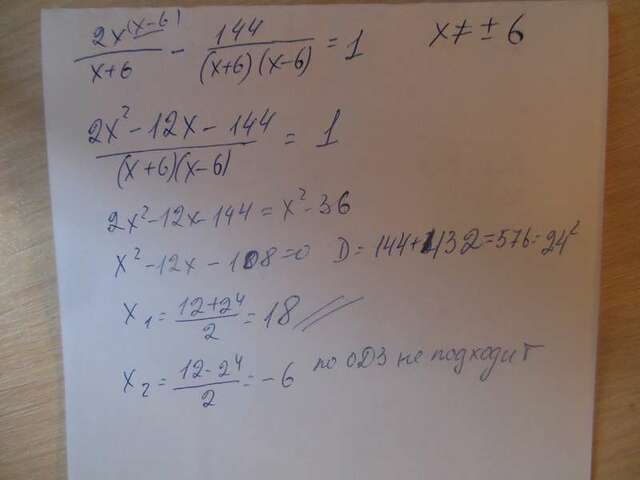 2x^(x-6)/(x+6) - 144/((x+6)(x-6)) = 1 x ≠ ± 6
(2x² - 12x - 144)/((x+6)(x-6)) = 1
2x² - 12x - 144 = x² - 36
x² - 12x - 108 = 0 D = 144 + 432 = 576 = 24²
x₁ = (12 + 24)/2 = 18 //
x₂ = (12 - 24)/2 = -6 по ОДЗ не подходит